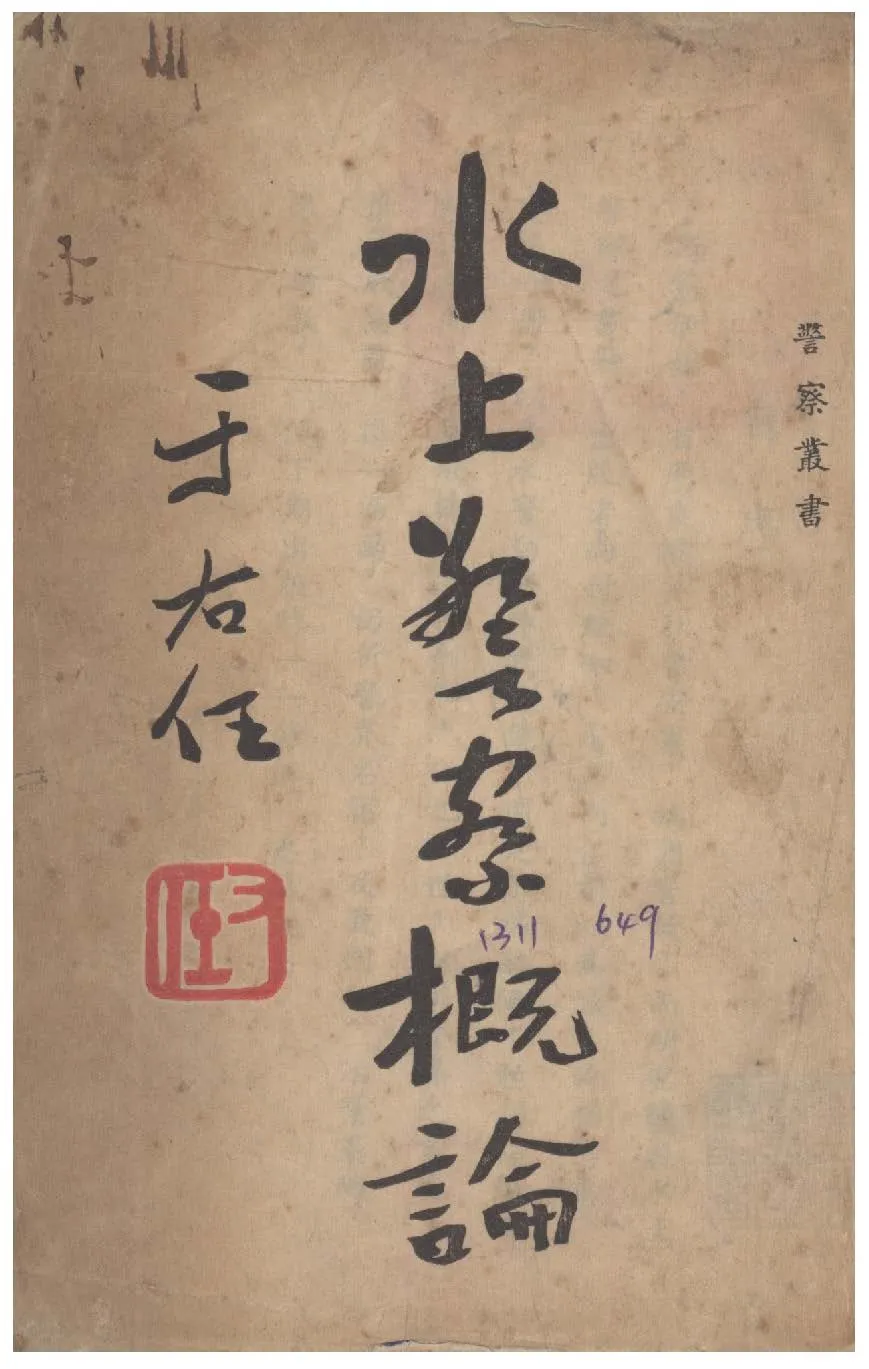 警察叢書
水上警察概論
1311 649
于右任